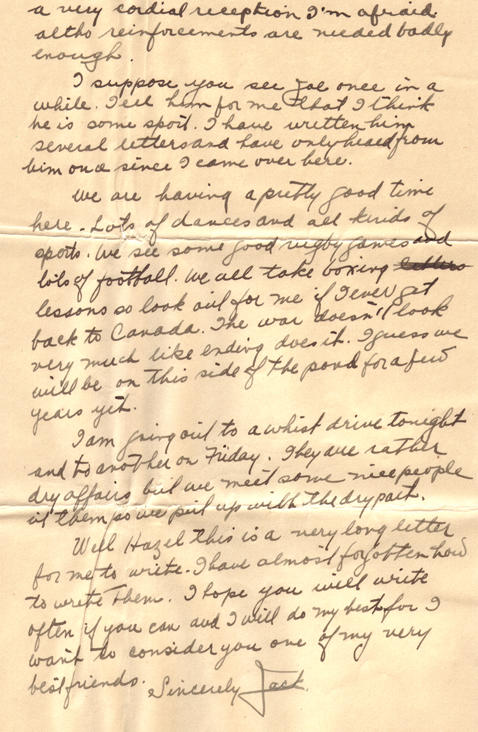 a very cordial reception I'm afraid
altho reinforcements are needed badly
enough.
I suppose you see Joe once in a
while. Tell him for me that I think
he is some sport. I have written him
several letters and have only heard from
him once since I came over here.
We are having a pretty good time
here. Lots of dances and all kinds of
sports. We see some good rugby games and
lots of football. We all take boxing letters
lessons so look out for me if I ever get
back to Canada. The war doesn't look
very much like ending does it. I guess we
will be on this side of the pond for a few
years yet.
I am going out to a whist drive tonight
and to another on Friday. They are rather
dry affairs but we meet some nice people
at them so we put up with the dry part.
Well Hazel this is a very long letter
for me to write. I have almost forgotten how
to write them. I hope you will write
often if you can and I will do my best for I
want to consider you one of my very
best friends. Sincerely Jack.